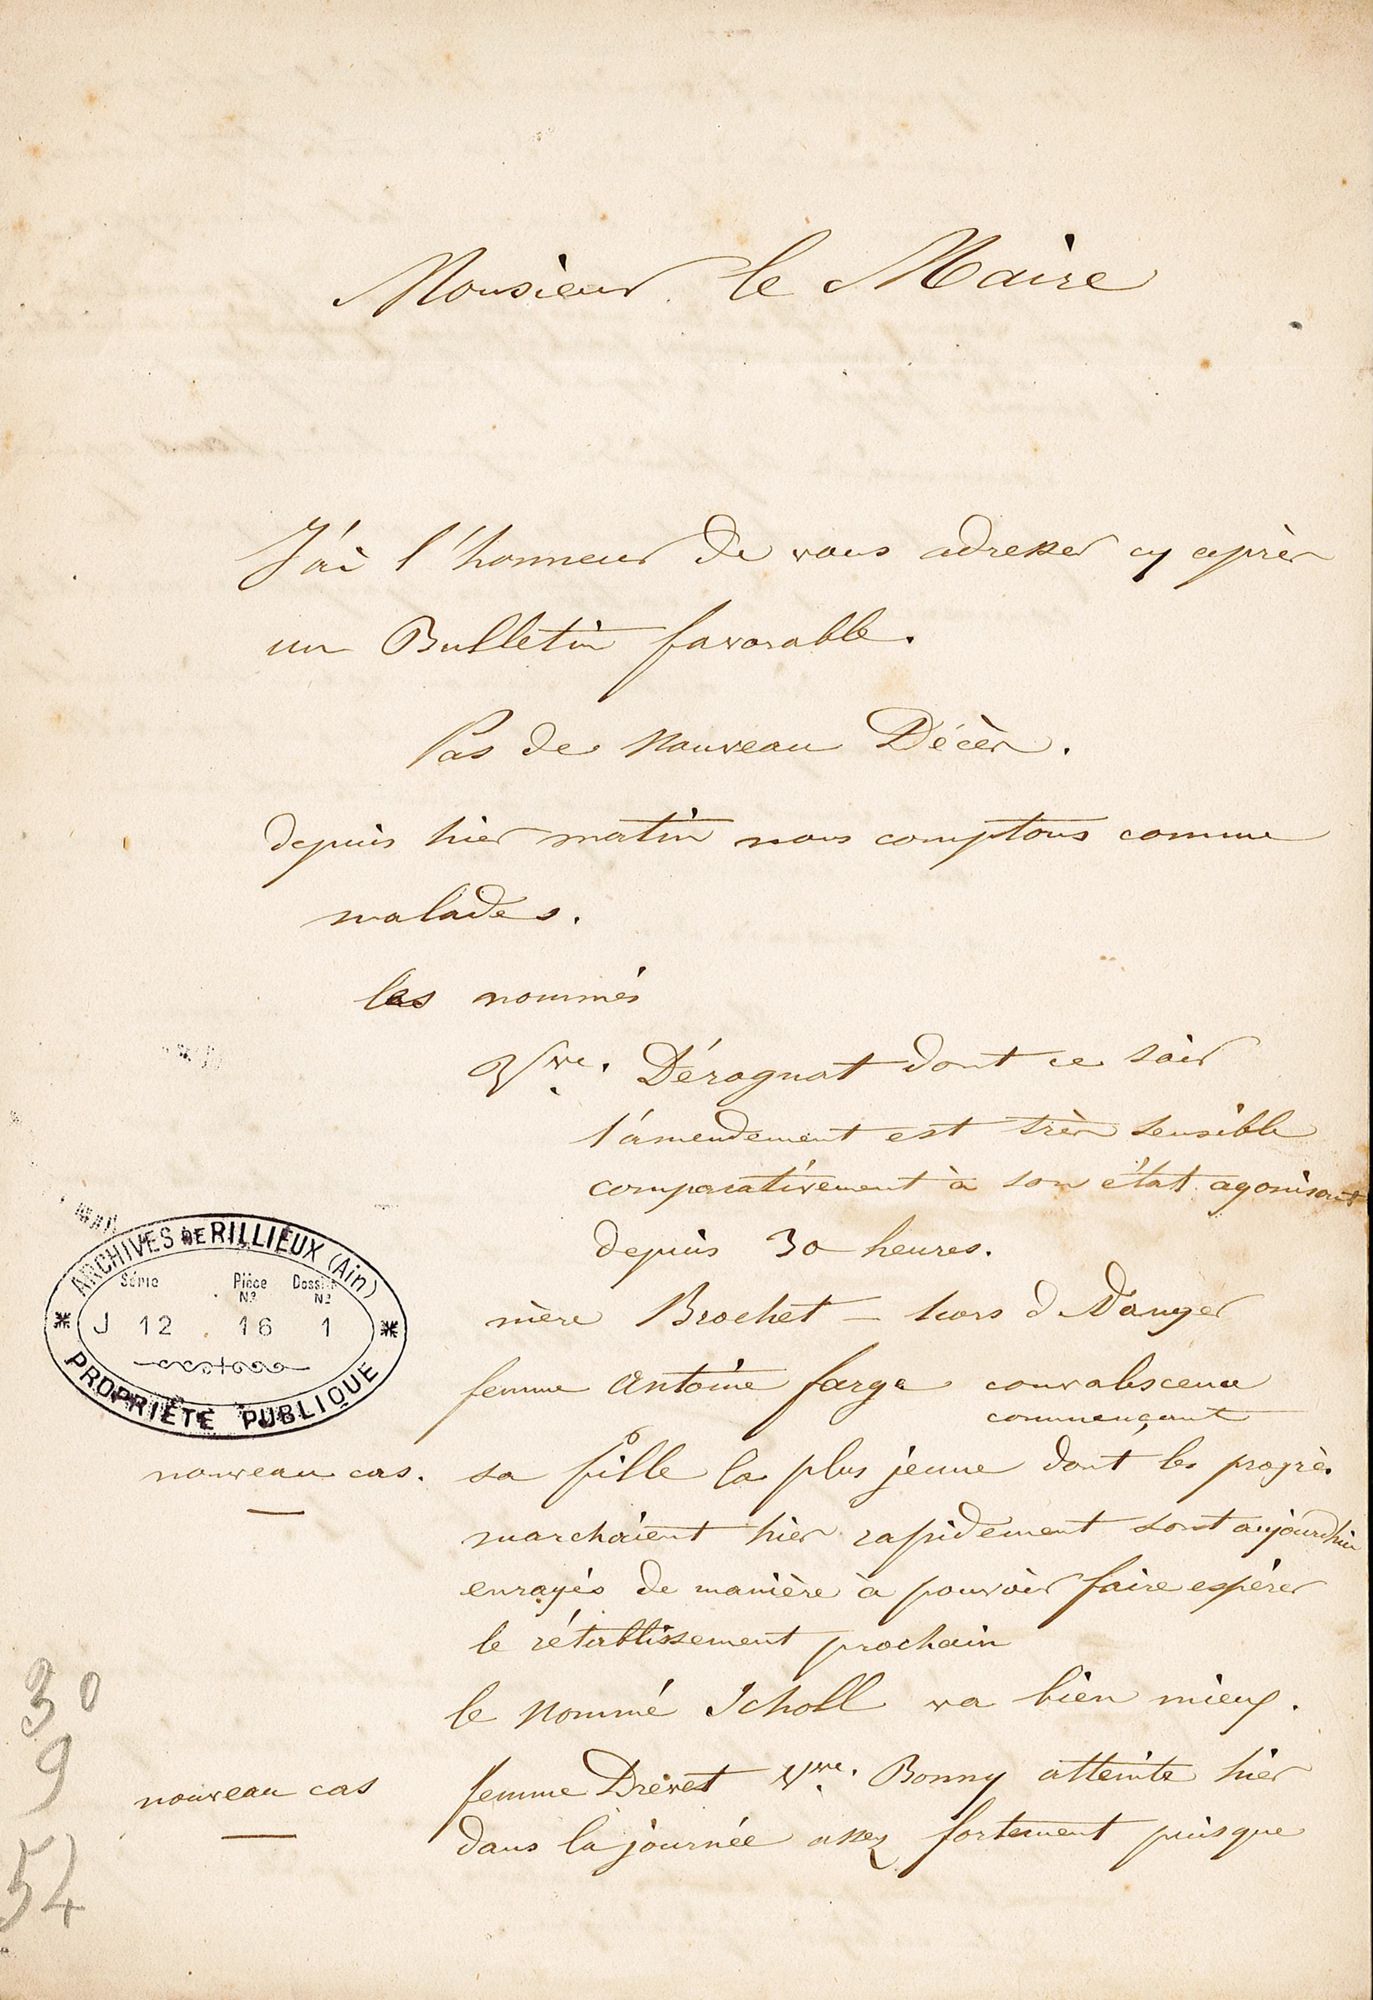 Monsieur le Maire
J'ai l'honneur de vous adresser cy après
un Bulletin favorable.
Pas de nouveau Décès.
depuis hier matin nous comptons comme
malades.
les nommés
Vve. Déroguat dont ce soir
l'amendement est très sensible
comparativement à son état agonisant
depuis 30 heures.
mère Brochet – hors d Danger
femme Antoine farge convalescence
commençant
nouveau cas. sa fille la plus jeune dont les progrès
marchaient hier rapidement sont aujourdhui
enrayés de manière à pouvoir faire espérer
le rétablissement prochain
le nommé Scholl va bien mieux.
nouveau cas femme Drevet Vve. Bonny atteinte hier
dans la journée assez fortement puisque
ARCHIVES DE RILLIEUX (Ain)
Série Pièce No Dossier No
J 12 16 1
PROPRIÉTÉ PUBLIQUE
30
9
54